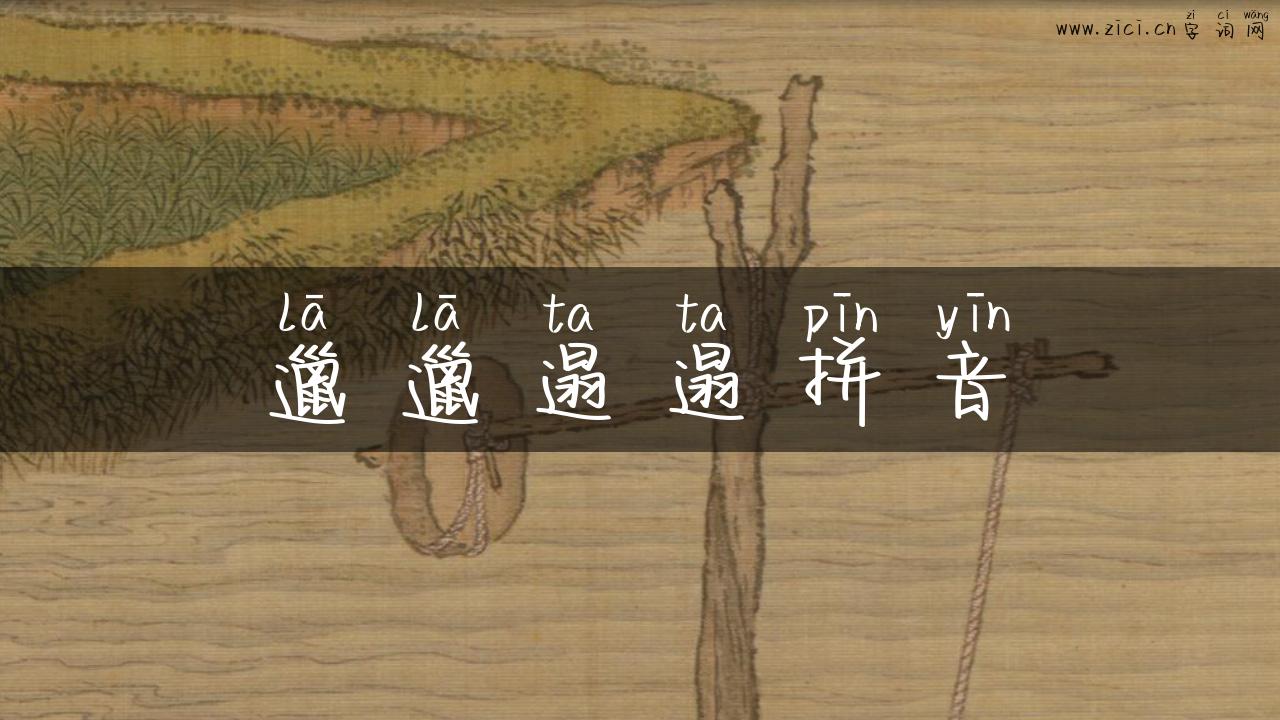 zì cí wǎng
www.zici.cn 字 词 网
lā lā ta ta pīn yīn
邋 邋 遢 遢 拼 音